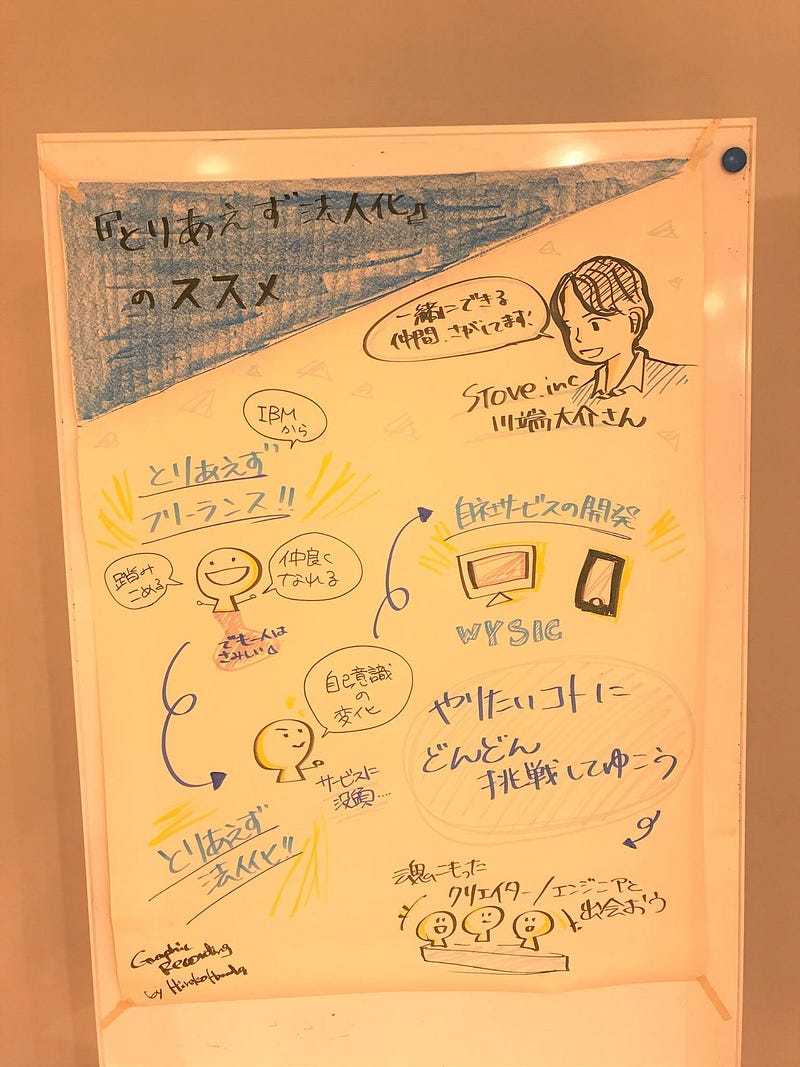 『とりあえず法人化』
のススメ
一緒にできる
仲間、さがしてます!
Stove.inc
川端大介さん
IBM
から
とりあえず
フリーランス!!
踏み
こめる
仲良く
なれる
でも一人は
さみしい
自己意識
の
変化
サービスに
没頭....
とりあえず
法人化!!
自社サービスの開発
WYSIC
やりたいコトに
どんどん
挑戦してゆこう
魂こもった
クリエイター/エンジニアと
出会おう
Graphic
Recording
by